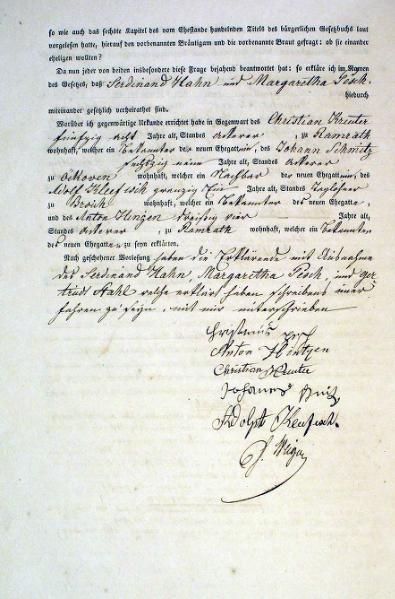 so wie auch das sechste Kapitel des vom Ehestande handelnden Titels des bürgerlichen Gesetzbuchs laut
vorgelesen hatte, hierauf den vorbenannten Bräutigam und die vorbenannte Braut gefragt: ob sie einander
ehelichen wollen?
Da nun jeder von beiden insbesondere diese Frage bejahend beantwortet hat: so erkläre ich im Namen
des Gesetzes, daß Ferdinand Hahn und Margaretha
hiedurch
miteinander gesetzlich verheirathet sind.
Worüber ich gegenwärtige Urkunde errichtet habe in Gegenwart des Christian Kreuter
fünfzig acht Jahre alt, Standes Ackerer, zu Ramrath
wohnhaft, welcher ein Bekannter der neuen Ehegattin, des Johann Schmitz
neun Jahre alt, Standes Ackerer
zu wohnhaft, welcher ein Nachbar der neuen Ehegattin, des
Adolf Jahre alt, Standes
zu Broich wohnhaft, welcher ein Bekannter des neuen Ehegatten,
und des Anton dreißig vier Jahre alt,
Standes Ackerer, zu Ramrath wohnhaft, welcher ein Bekannter
des neuen Ehegatten zu seyn erklärten.
Nach geschehener Vorlesung haben die Erklärende mit Ausnahme
des Ferdinand Hahn, Margaretha und Ger
trud Stahl welche erklärt haben schreibens uner
fahren zu seyn, mit mir unterschrieben
Anton
Christian Kreuter
Johannes
Adolph